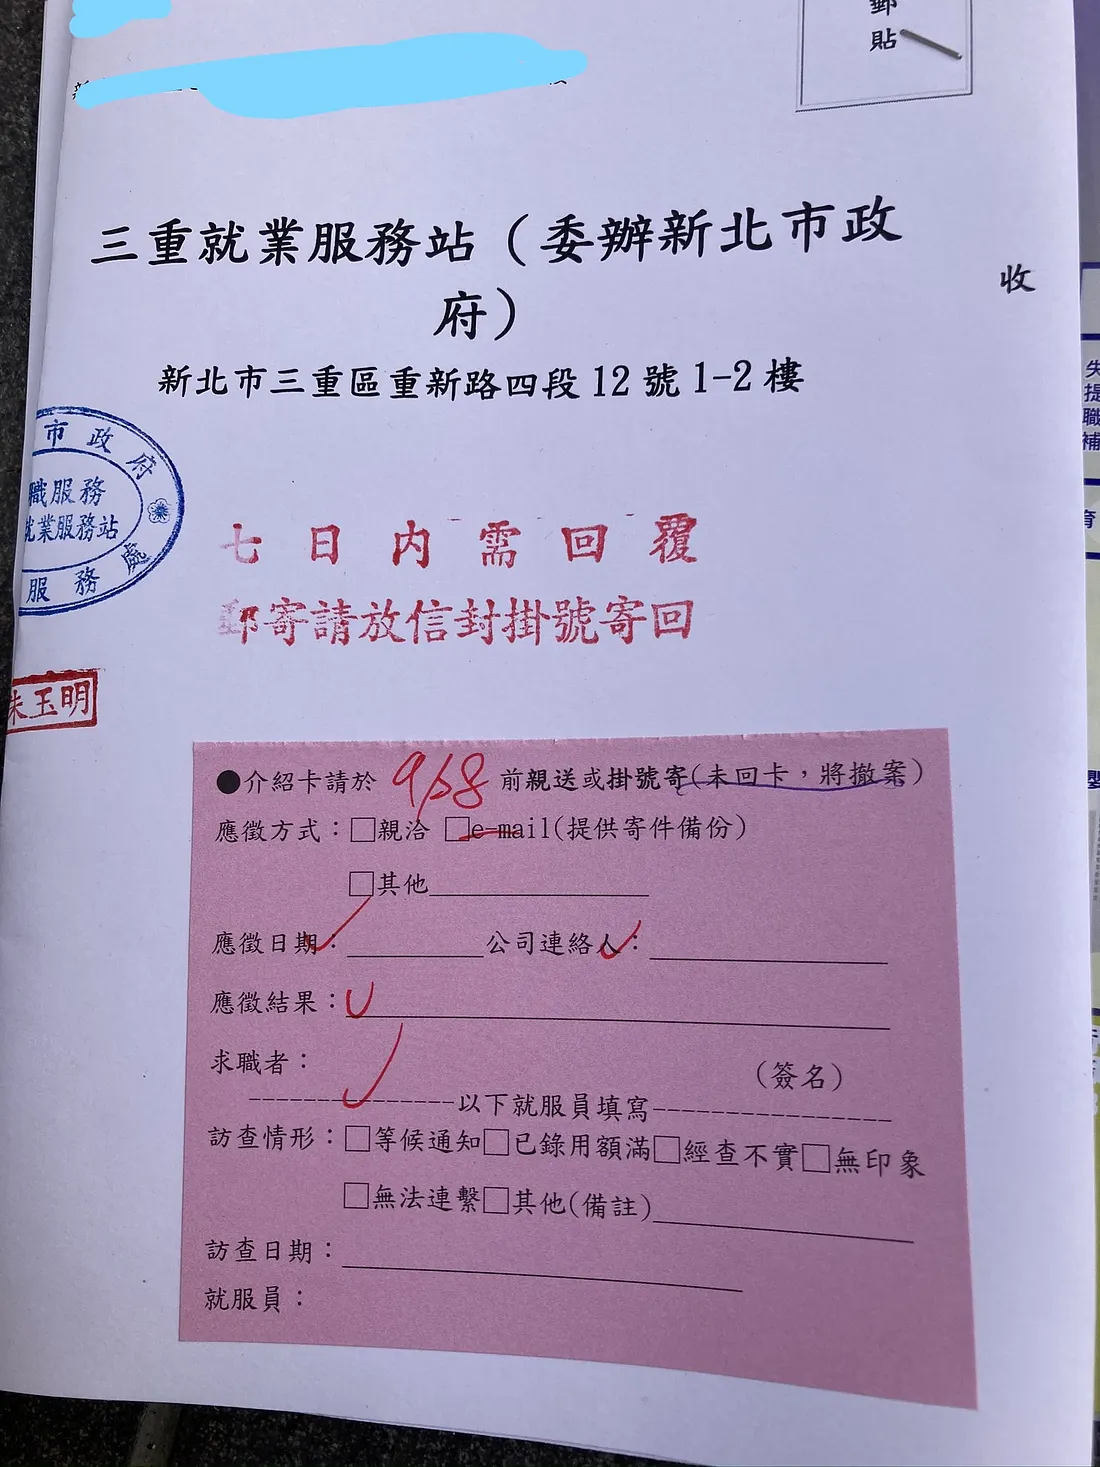 郵
貼
三重就業服務站（委辦新北市政
府）
收
新北市三重區重新路四段12號1-2樓
市政府
職服務
就業服務站
服務處
七日內需回覆
郵寄請放信封掛號寄回
朱玉明
●介紹卡請於 9/68 前親送或掛號寄(未回卡，將撤案)
應徵方式：□親洽 □e-mail(提供寄件備份)
□其他
應徵日期： 公司連絡人：
應徵結果：
求職者： (簽名)
以下就服員填寫
訪查情形：□等候通知□已錄用額滿□經查不實□無印象
□無法連繫□其他(備註)
訪查日期：
就服員：
失
提
職
補
育